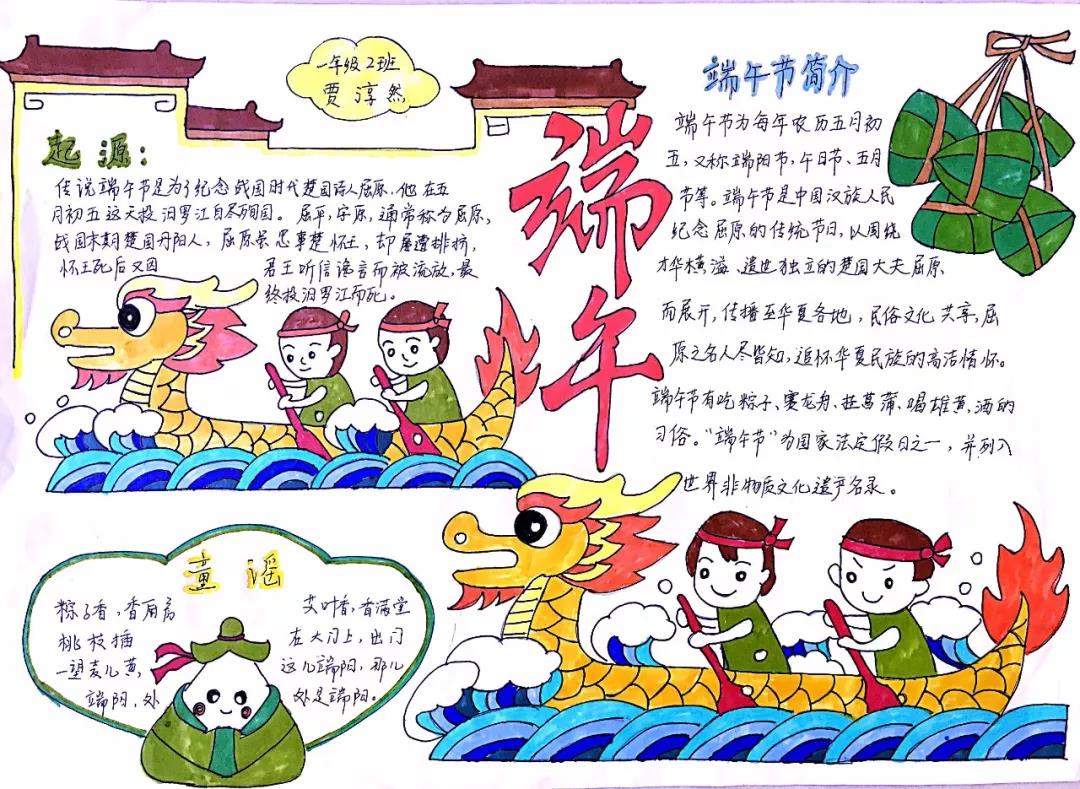 一年级2班
贾淳然
起源：
传说端午节是为了纪念战国时代楚国诗人屈原，他在五
月初五这天投汨罗江自尽殉国。屈平，字原，通常称为屈原，
战国末期楚国丹阳人，屈原虽忠事楚怀王，却屡遭排挤，
怀王死后又因 君王听信谗言而被流放，最
终投汨罗江而死。
端午
端午节简介
端午节为每年农历五月初
五，又称端阳节，午日节、五月
节等。端午节是中国汉族人民
纪念屈原的传统节日，以围绕
才华横溢、遗世独立的楚国大夫屈原、
而展示，传播至华夏各地，民俗文化共享，屈
原之名人尽皆知，追怀华夏民族的高洁情怀。
端午节有吃粽子、赛龙舟、挂菖蒲、喝雄黄，酒的
习俗。“端午节”为国家法定假日之一，并列入
世界非物质文化遗产名录。
童谣
粽子香，香厨房 艾叶香，香满堂
桃枝插 在大门上，出门
一望麦儿黄， 这儿端阳，那儿
端阳，处 处是端阳。